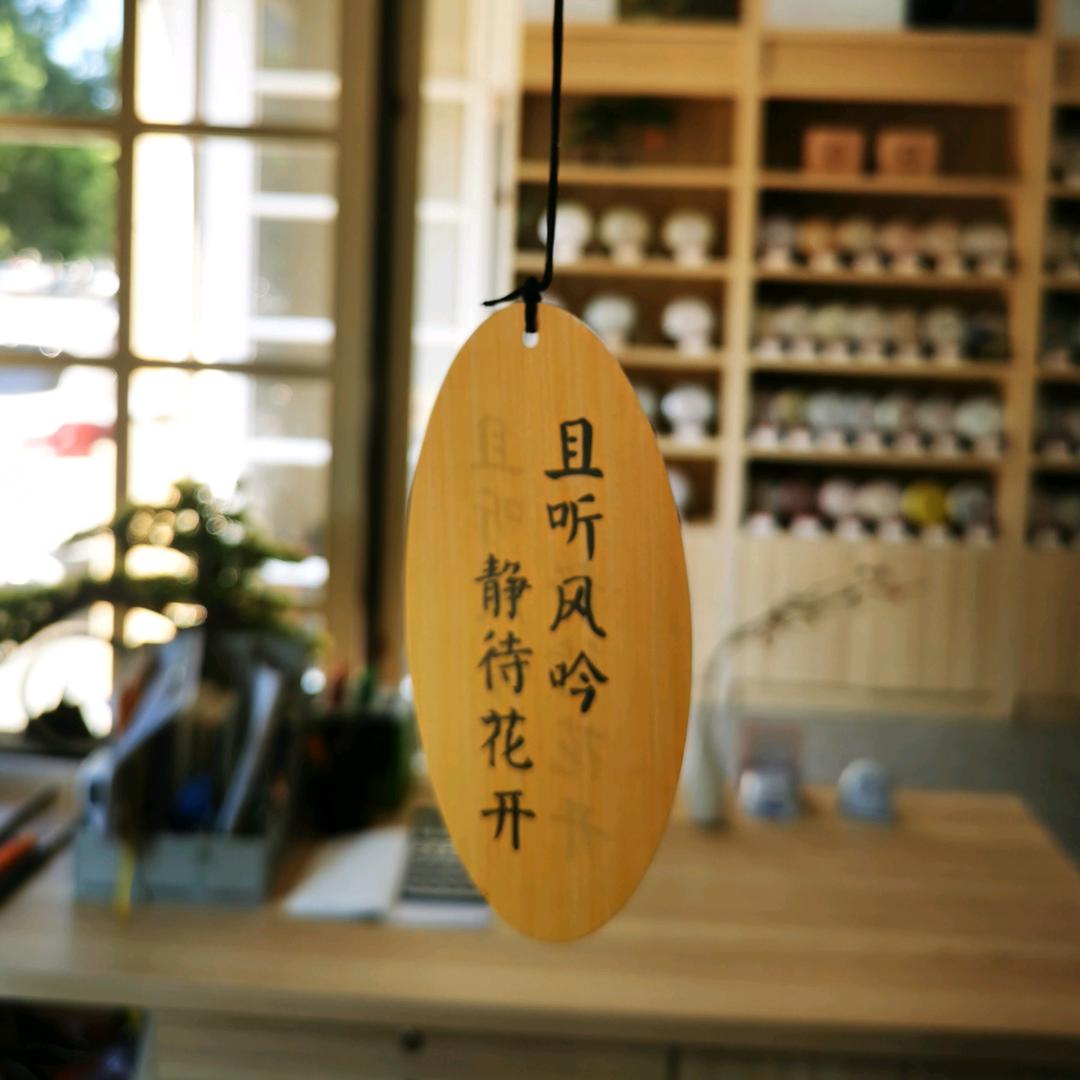 且听风吟
静待花开